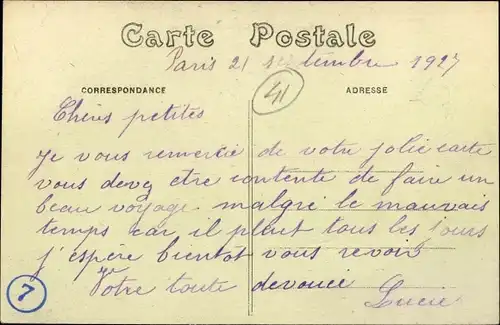 Carte Postale
Paris 21 septembre 1927
CORRESPONDANCE
ADRESSE
41
Chères petites
Je vous remercie de votre jolie carte
vous devez etre contente de faire un
beau voyage malgré le mauvais
temps car il pleut tous les jours
j'espère bientot vous revoir
Votre toute devouée
Lucie
7